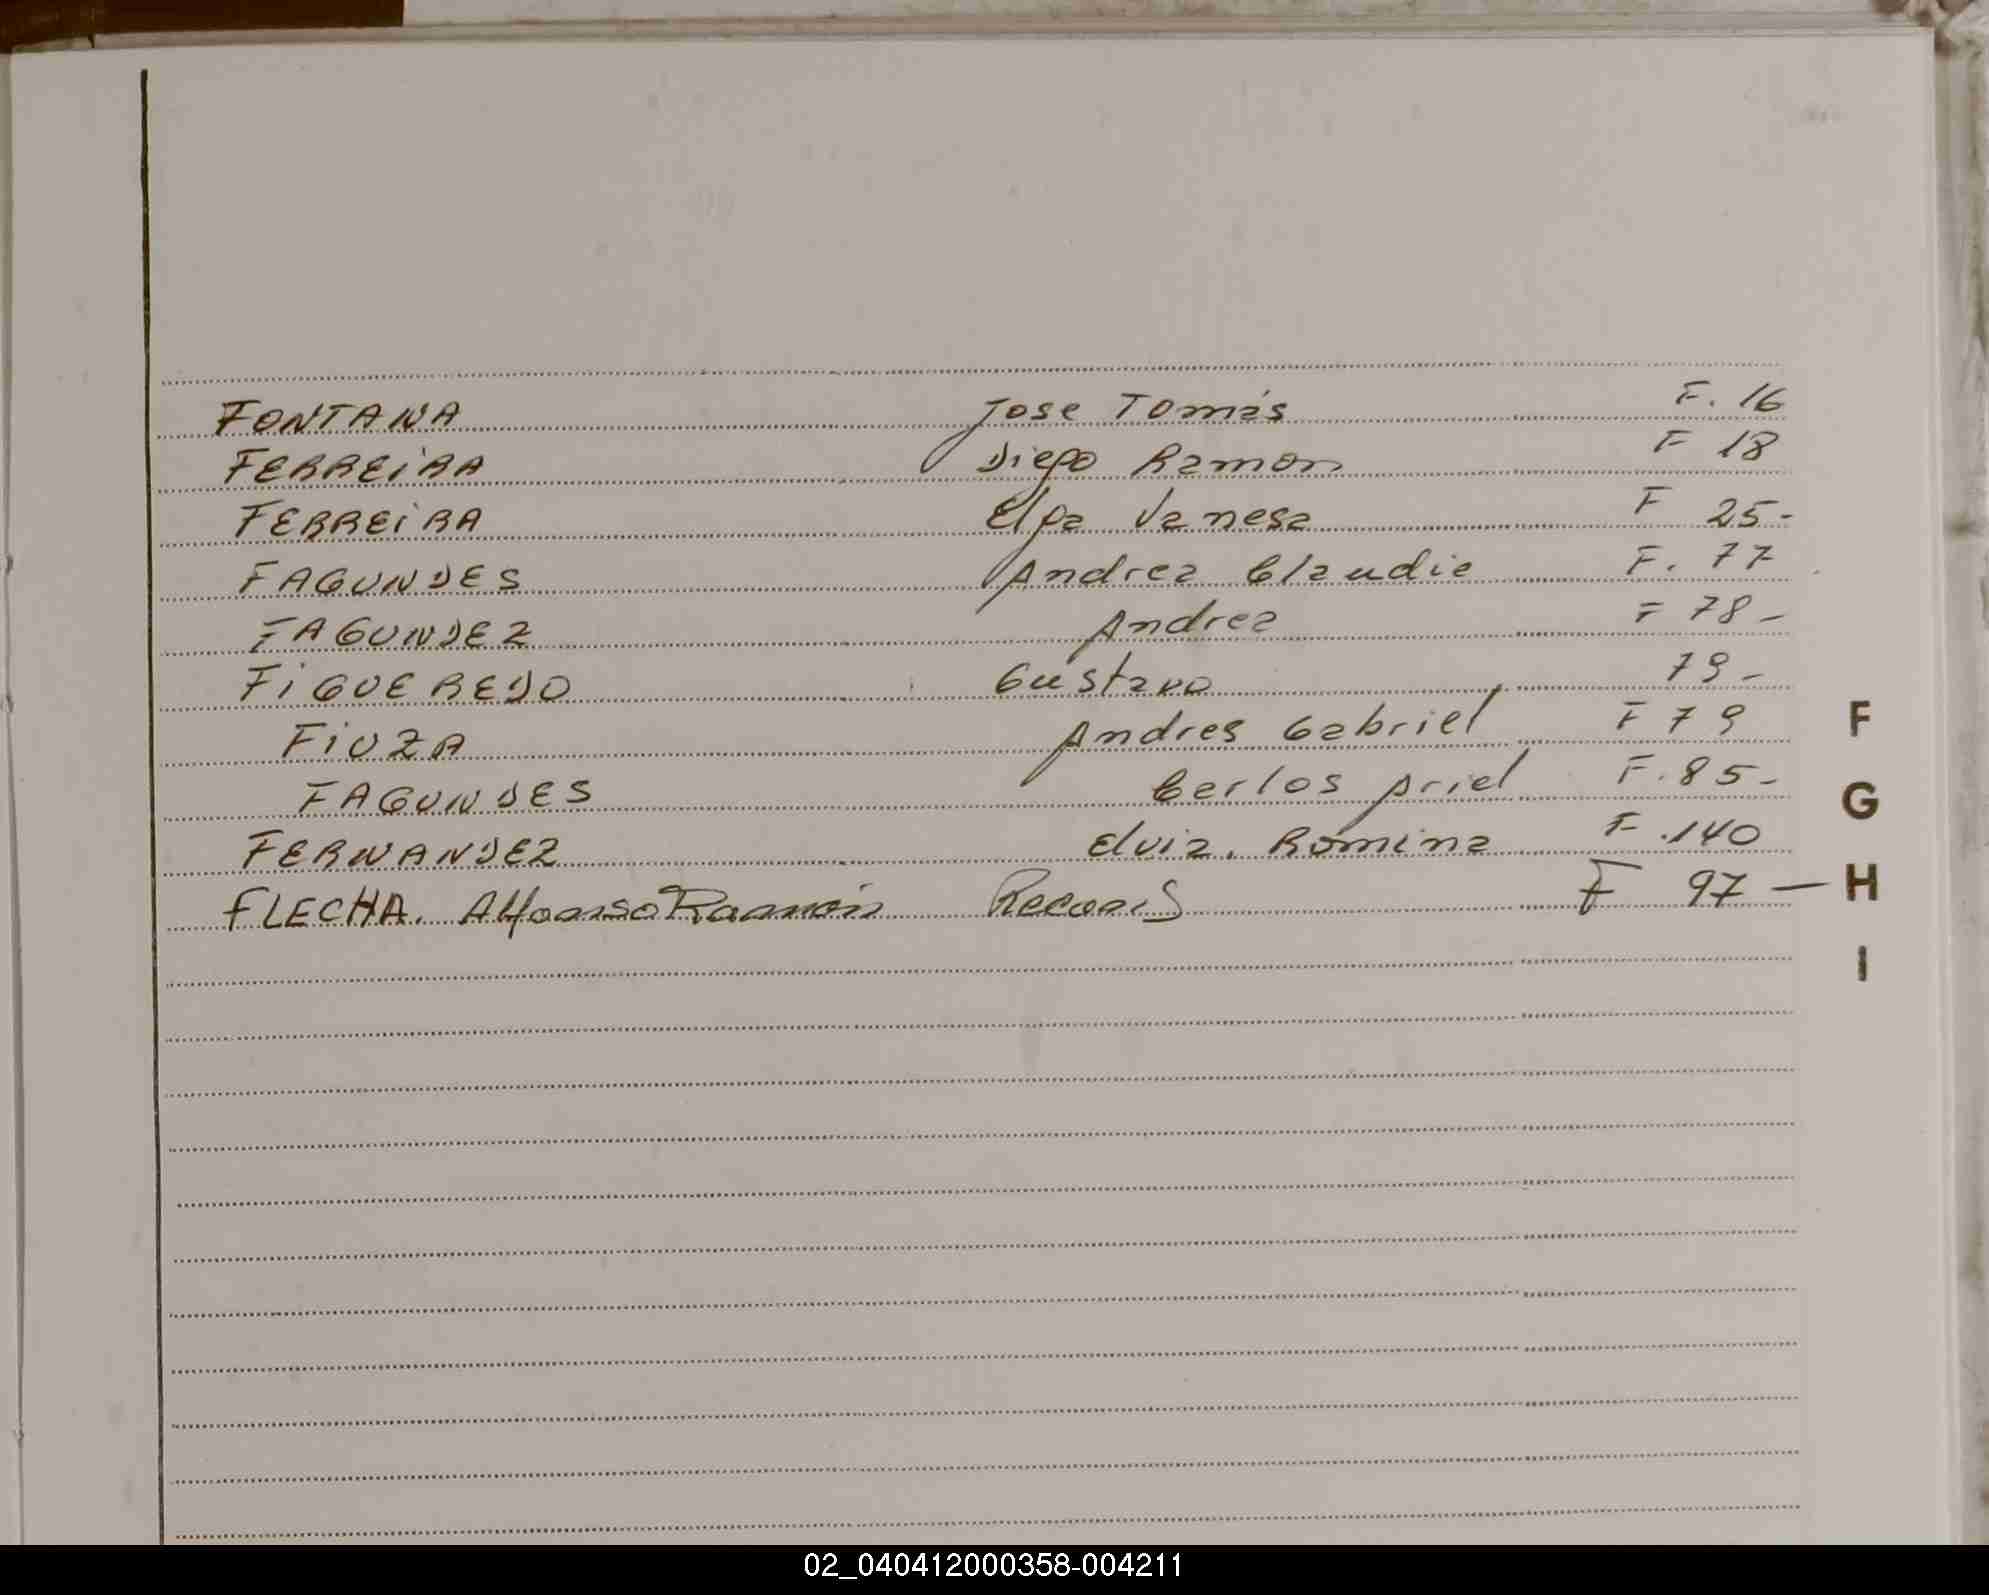 FONTANA Jose Tomás F. 16
FERREiRA Diego Ramon F 18
FERREiRA Elga Vanesa F 25-
FAGUNDES Andrea Claudia F. 77
FAGUNDEZ Andrea F 78-
FiGUEREDO Gustavo 79-
FiUZA Andres Gabriel F 79
FAGUNDES Carlos Ariel F. 85-
FERNANDEZ Elvia. Romina F. 140
FLECHA. Alfonso Ramón F 97 —
F
G
H
I
02_040412000358-004211